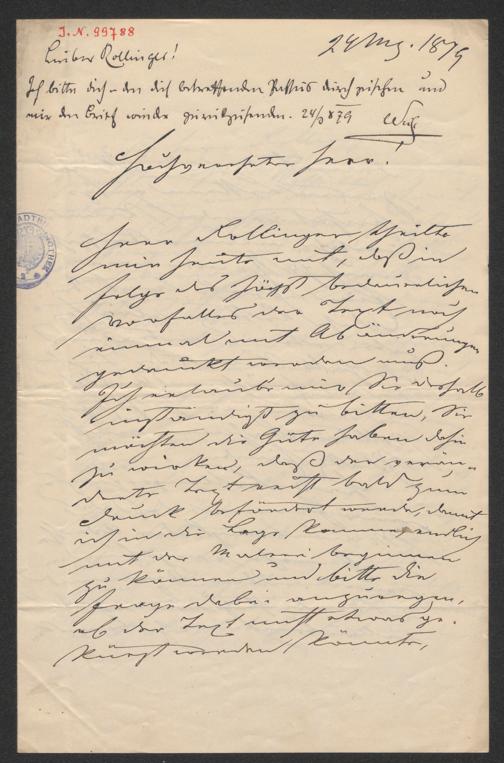 J. N. 99788
24 Mz. 1879
Lieber Rollinger!
Ich bitte dich den dich betreffenden Passus durchzusehen und
mir den Brief wieder zurückzusenden. 24/3 879
Hochverehrter Herr!
Herr Rollinger theilte
mir heute mit, daß in
folge des höchst bedauerlichen
Vorfalles der Text noch
einmal mit Abänderungen
gedruckt werden muß.
Ich erlaube mir Sie deshalb
inständigst zu bitten, Sie
möchten die Güte haben dahin
zu wirken, daß der verän-
derte Text recht bald zum
Druck befördert werde, damit
ich in die Lage komme endlich
mit der Malerei beginnen
zu können und bitte die
Frage dabei anzuregen,
ob der Text nicht etwas ge-
kürzt werden könnte,